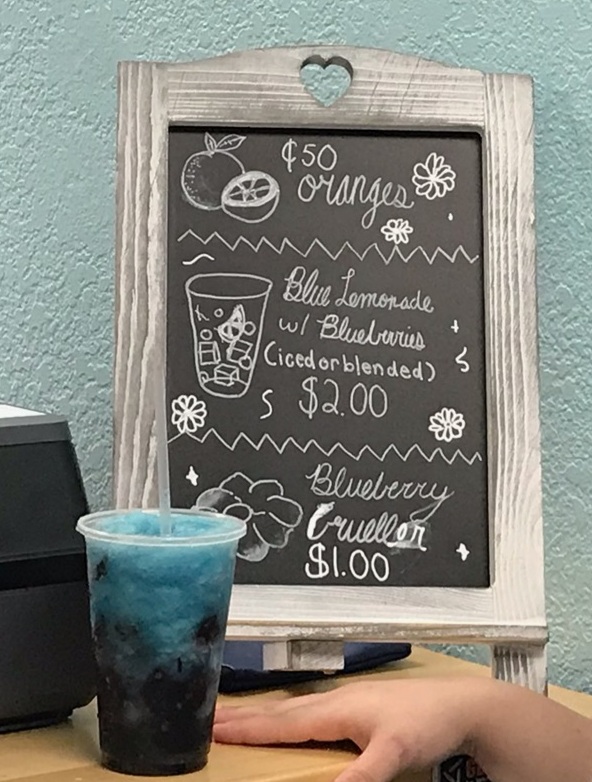 ¢50
oranges
Blue Lemonade
w/ Blueberries
(iced or blended)
$2.00
Blueberry
Cruellor
$1.00